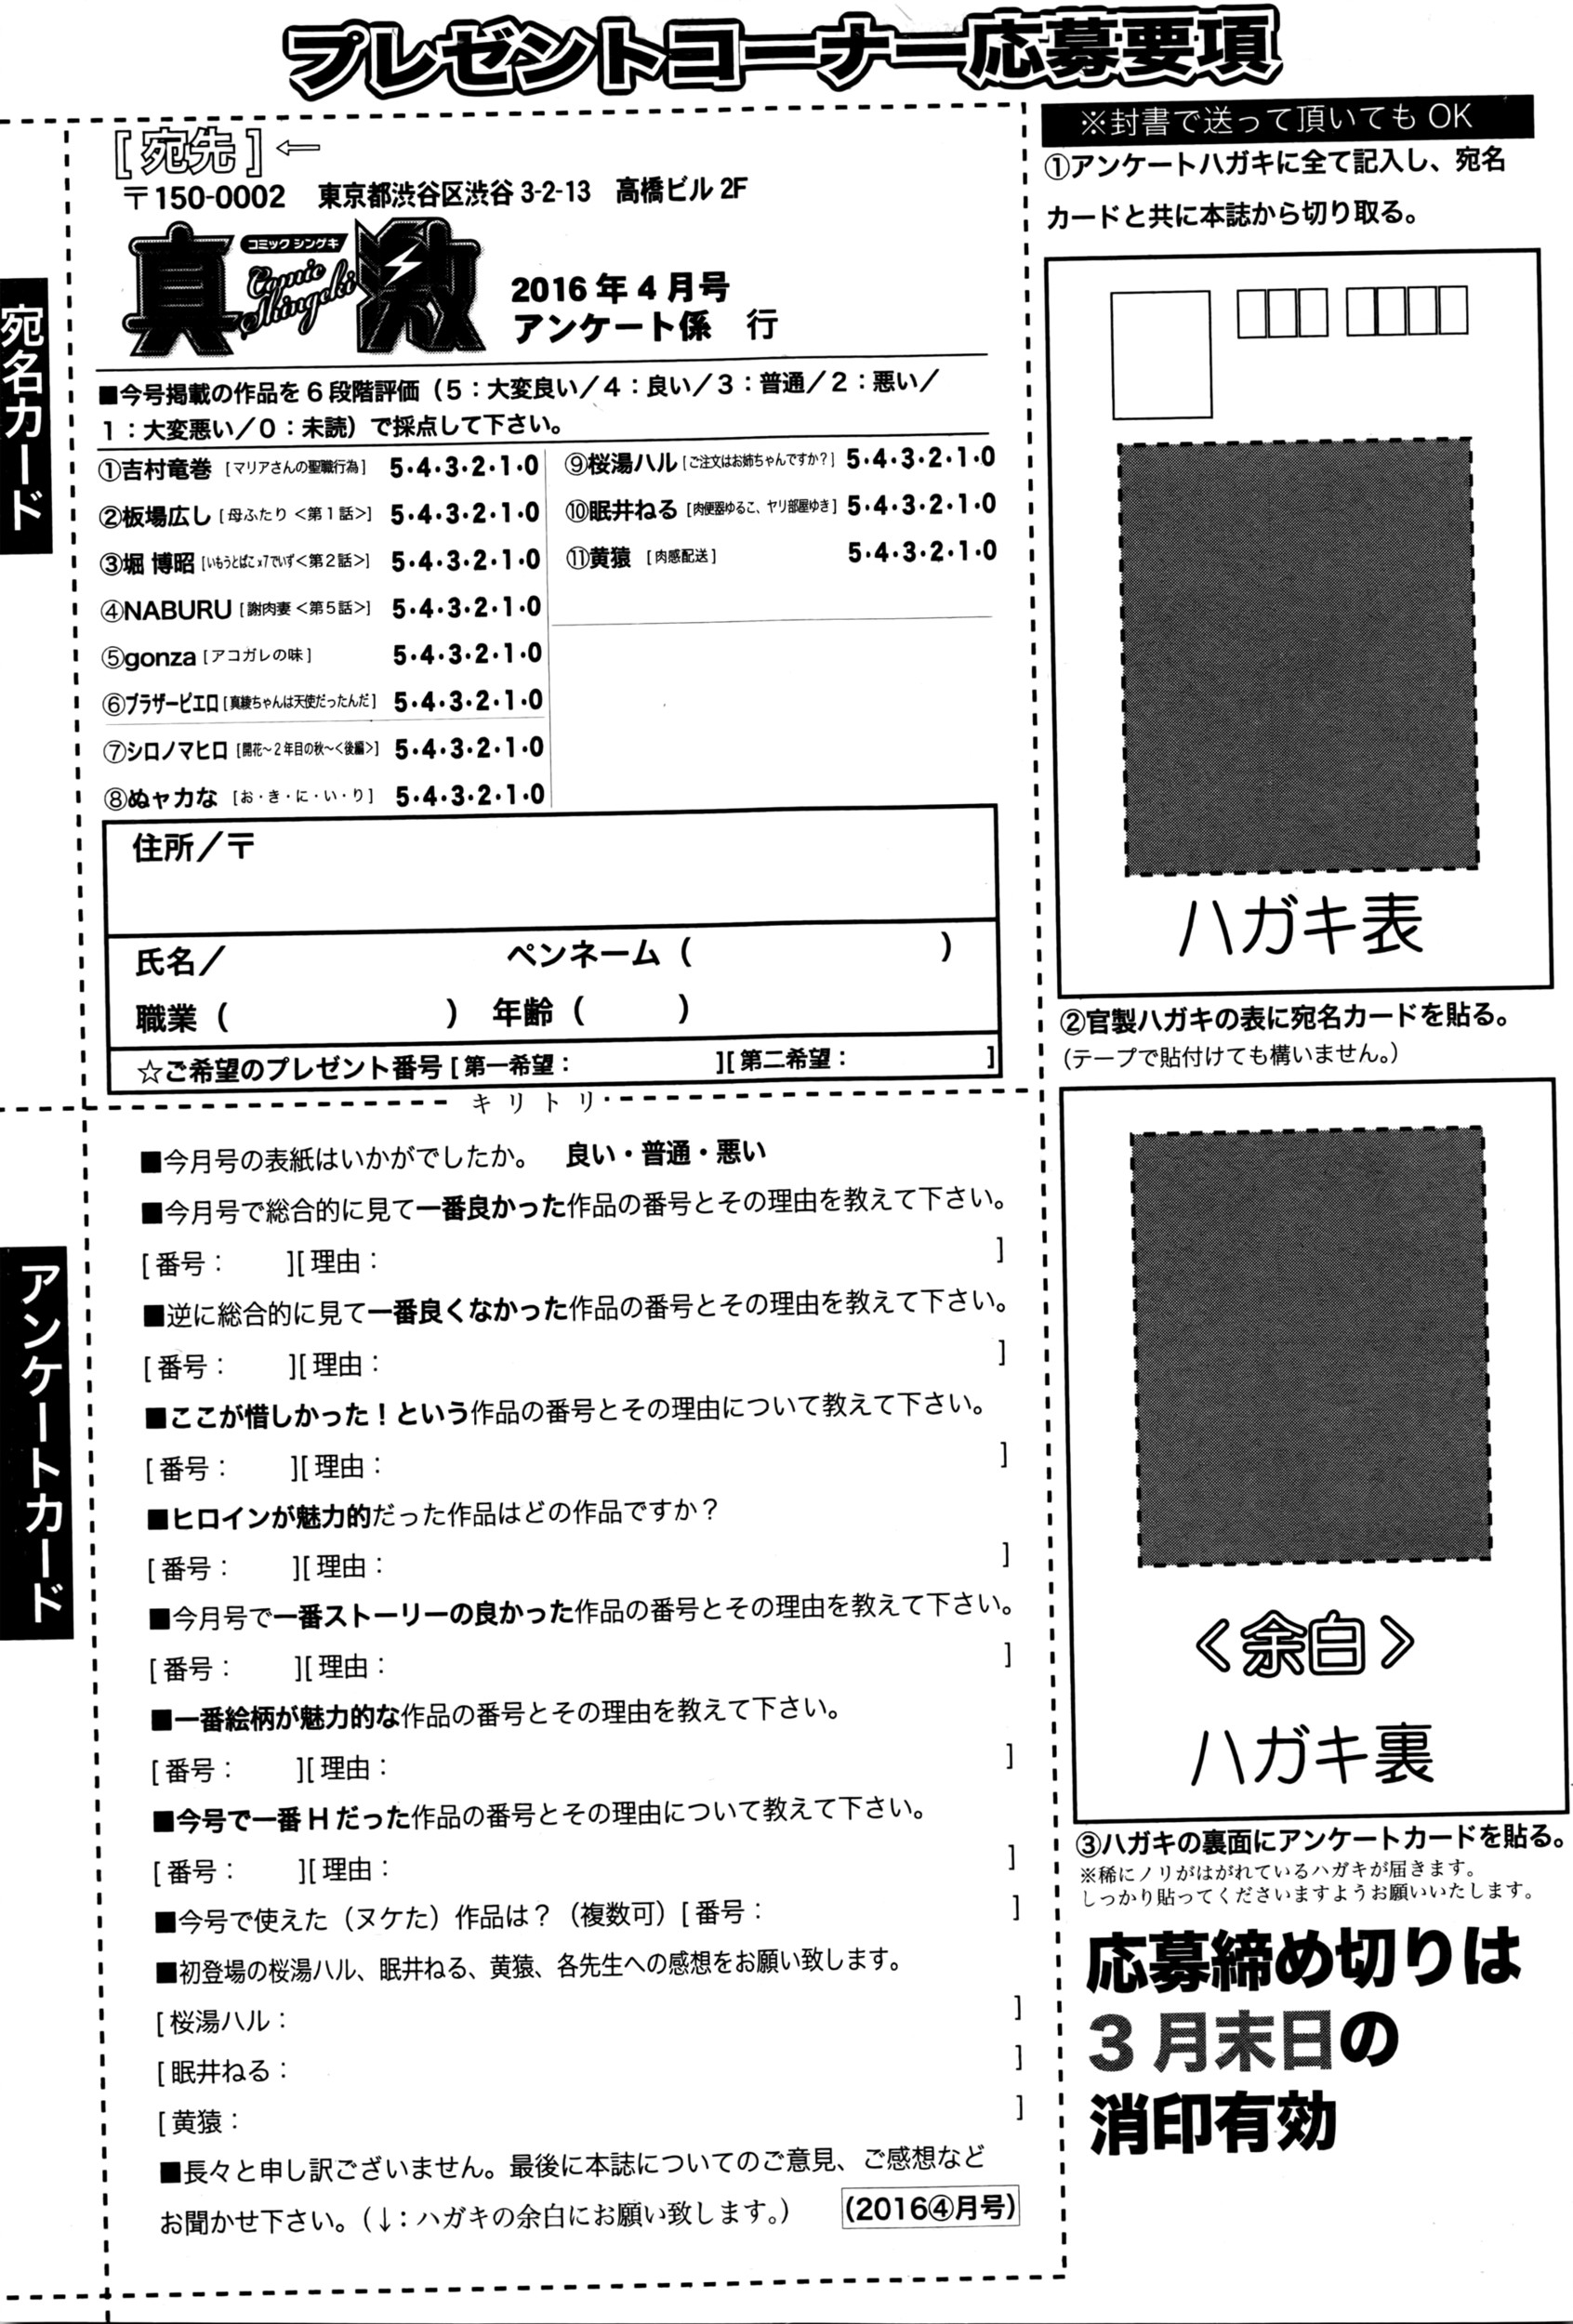 プレゼントコーナー応募要項
宛名カード
[宛先]⇦
〒150-0002　東京都渋谷区渋谷 3-2-13　高橋ビル 2F
真激
コミック シンゲキ
Comic Shingeki
2016 年 4 月号
アンケート係　行
■今号掲載の作品を 6 段階評価（5：大変良い／4：良い／3：普通／2：悪い／
1：大変悪い／0：未読）で採点して下さい。
①吉村竜巻 [マリアさんの聖職行為] 5・4・3・2・1・0
②板場広し [母ふたり＜第1話＞] 5・4・3・2・1・0
③堀 博昭 [いもうとばこx7でいず＜第2話＞] 5・4・3・2・1・0
④NABURU [謝肉妻＜第5話＞] 5・4・3・2・1・0
⑤gonza [アコガレの味] 5・4・3・2・1・0
⑥ブラザーピエロ [真綾ちゃんは天使だったんだ] 5・4・3・2・1・0
⑦シロノマヒロ [開花～2年目の秋～＜後編＞] 5・4・3・2・1・0
⑧ぬャカな [お・き・に・い・り] 5・4・3・2・1・0
⑨桜湯ハル [ご注文はお姉ちゃんですか？] 5・4・3・2・1・0
⑩眠井ねる [肉便器ゆるこ、ヤリ部屋ゆき] 5・4・3・2・1・0
⑪黄猿 [肉感配送] 5・4・3・2・1・0
住所／〒
氏名／　ペンネーム（　）
職業（　）　年齢（　）
☆ご希望のプレゼント番号 [ 第一希望：　][ 第二希望：　]
キリトリ
アンケートカード
■今月号の表紙はいかがでしたか。　良い・普通・悪い
■今月号で総合的に見て一番良かった作品の番号とその理由を教えて下さい。
[ 番号：　][ 理由：　]
■逆に総合的に見て一番良くなかった作品の番号とその理由を教えて下さい。
[ 番号：　][ 理由：　]
■ここが惜しかった！という作品の番号とその理由について教えて下さい。
[ 番号：　][ 理由：　]
■ヒロインが魅力的だった作品はどの作品ですか？
[ 番号：　][ 理由：　]
■今月号で一番ストーリーの良かった作品の番号とその理由を教えて下さい。
[ 番号：　][ 理由：　]
■一番絵柄が魅力的な作品の番号とその理由を教えて下さい。
[ 番号：　][ 理由：　]
■今号で一番 H だった作品の番号とその理由について教えて下さい。
[ 番号：　][ 理由：　]
■今号で使えた（ヌケた）作品は？（複数可）[ 番号：　]
■初登場の桜湯ハル、眠井ねる、黄猿、各先生への感想をお願い致します。
[ 桜湯ハル：　]
[ 眠井ねる：　]
[ 黄猿：　]
■長々と申し訳ございません。最後に本誌についてのご意見、ご感想など
お聞かせ下さい。（↓：ハガキの余白にお願い致します。）
(2016④月号)
※封書で送って頂いてもOK
①アンケートハガキに全て記入し、宛名
カードと共に本誌から切り取る。
ハガキ表
②官製ハガキの表に宛名カードを貼る。
（テープで貼付けても構いません。）
＜余白＞
ハガキ裏
③ハガキの裏面にアンケートカードを貼る。
※稀にノリがはがれているハガキが届きます。
しっかり貼ってくださいますようお願いいたします。
応募締め切りは
3月末日の
消印有効